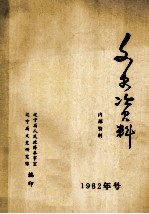 文史资料
内部资料
辽宁省人民政府参事室
辽宁省文史研究馆
编印
1982年号